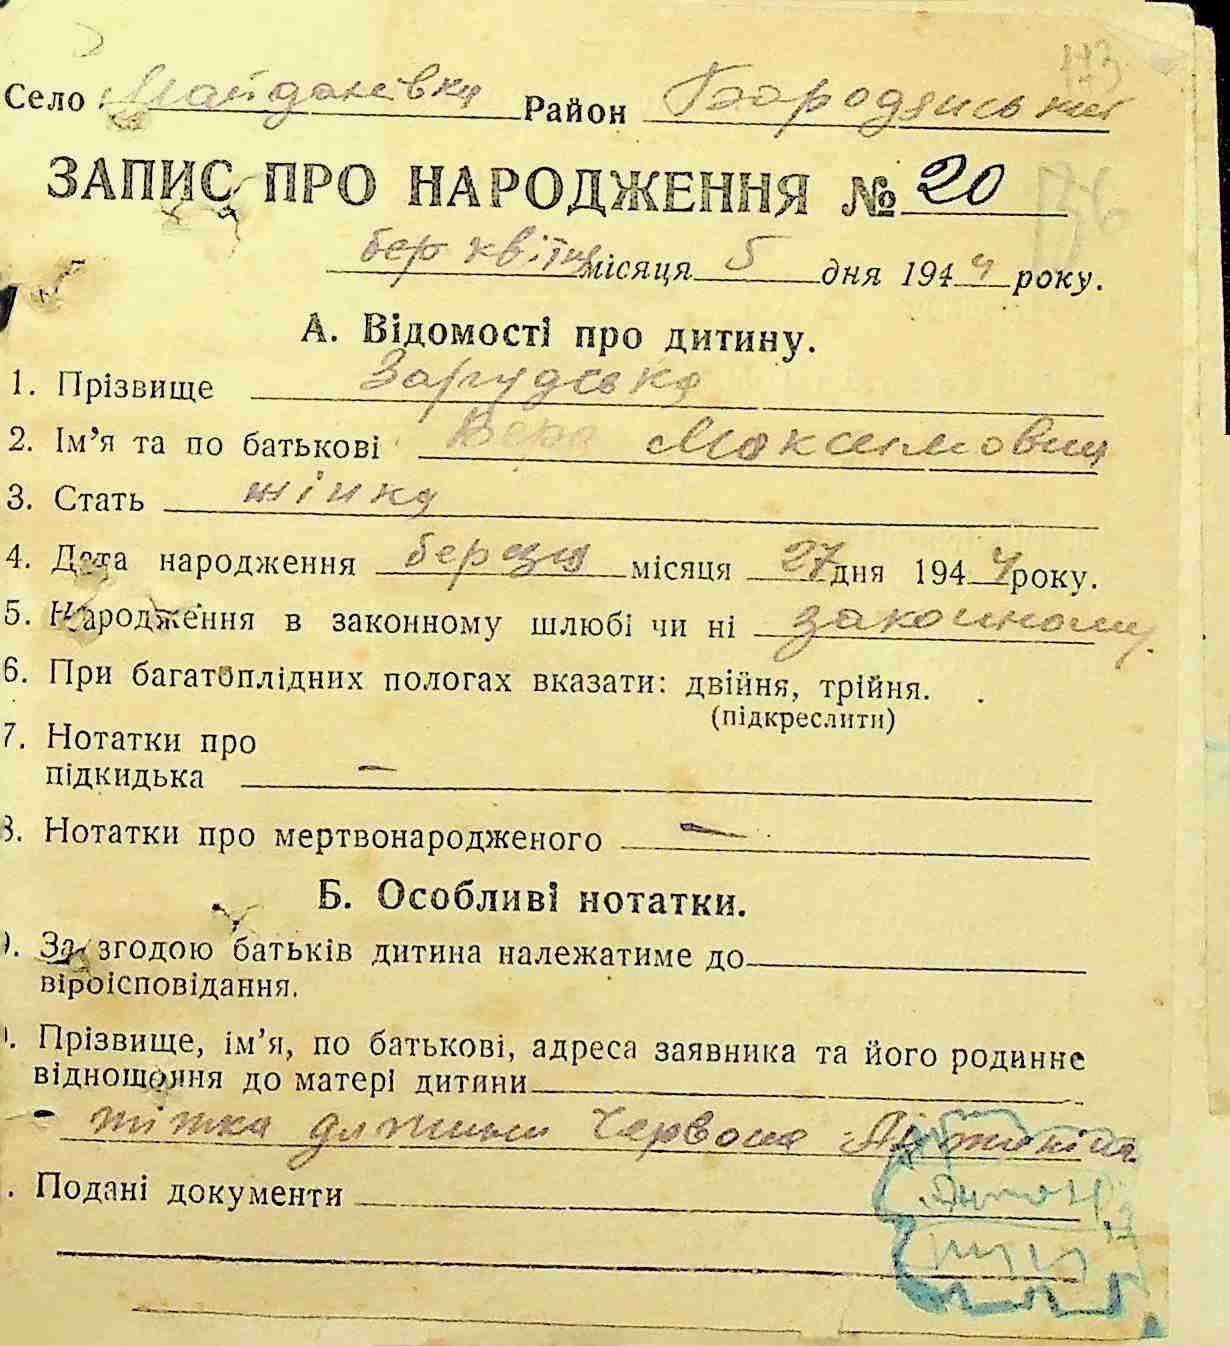 113
Село Майданівка Район Бородянський
ЗАПИС ПРО НАРОДЖЕННЯ № 20
136
бер квітня місяця 5 дня 1944 року.
А. Відомості про дитину.
1. Прізвище Зарудська
2. Ім’я та по батькові Вера Максимовна
3. Стать жінка
4. Дата народження березня місяця 27 дня 1944 року.
5. Народження в законному шлюбі чи ні законному.
6. При багатоплідних пологах вказати: двійня, трійня.
(підкреслити)
7. Нотатки про
підкидька —
8. Нотатки про мертвонародженого —
Б. Особливі нотатки.
). За згодою батьків дитина належатиме до
віроісповідання.
. Прізвище, ім’я, по батькові, адреса заявника та його родинне
відношення до матері дитини
- тітка дитини Червона
. Подані документи